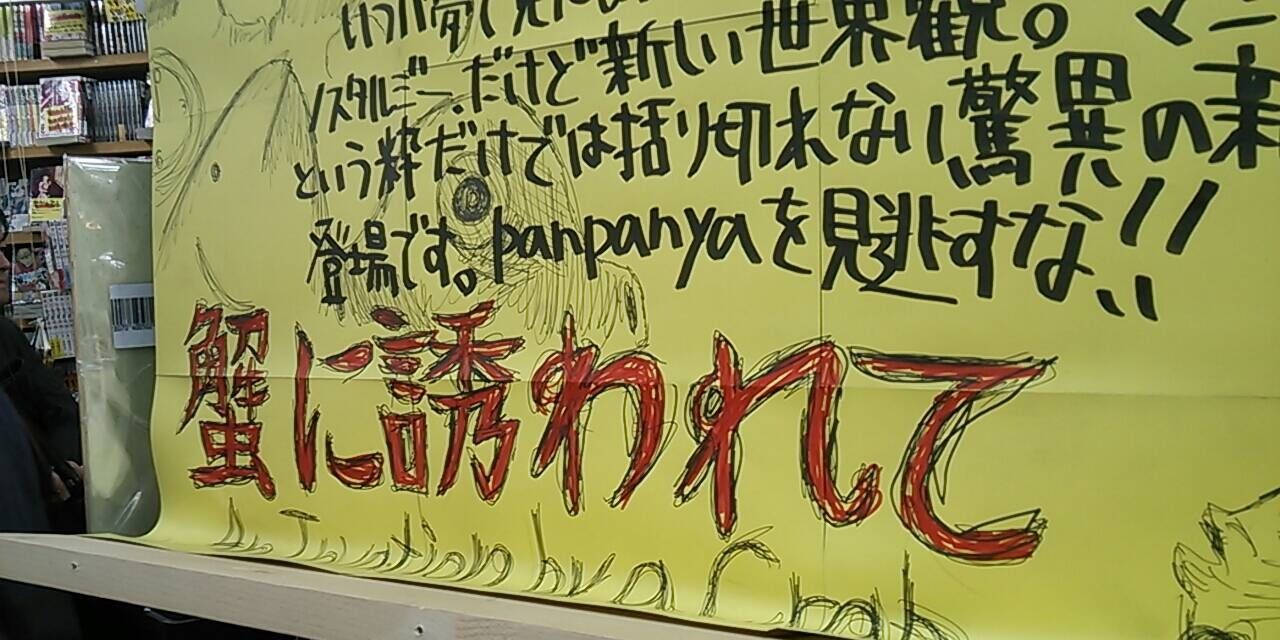 いつか夢で見た
ノスタルジー、だけど新しい世界観。マニ
という粋だけでは括り切れない驚異の新
登場です。panpanyaを見逃すな!!
蟹に誘われて
Invitation by a Crab